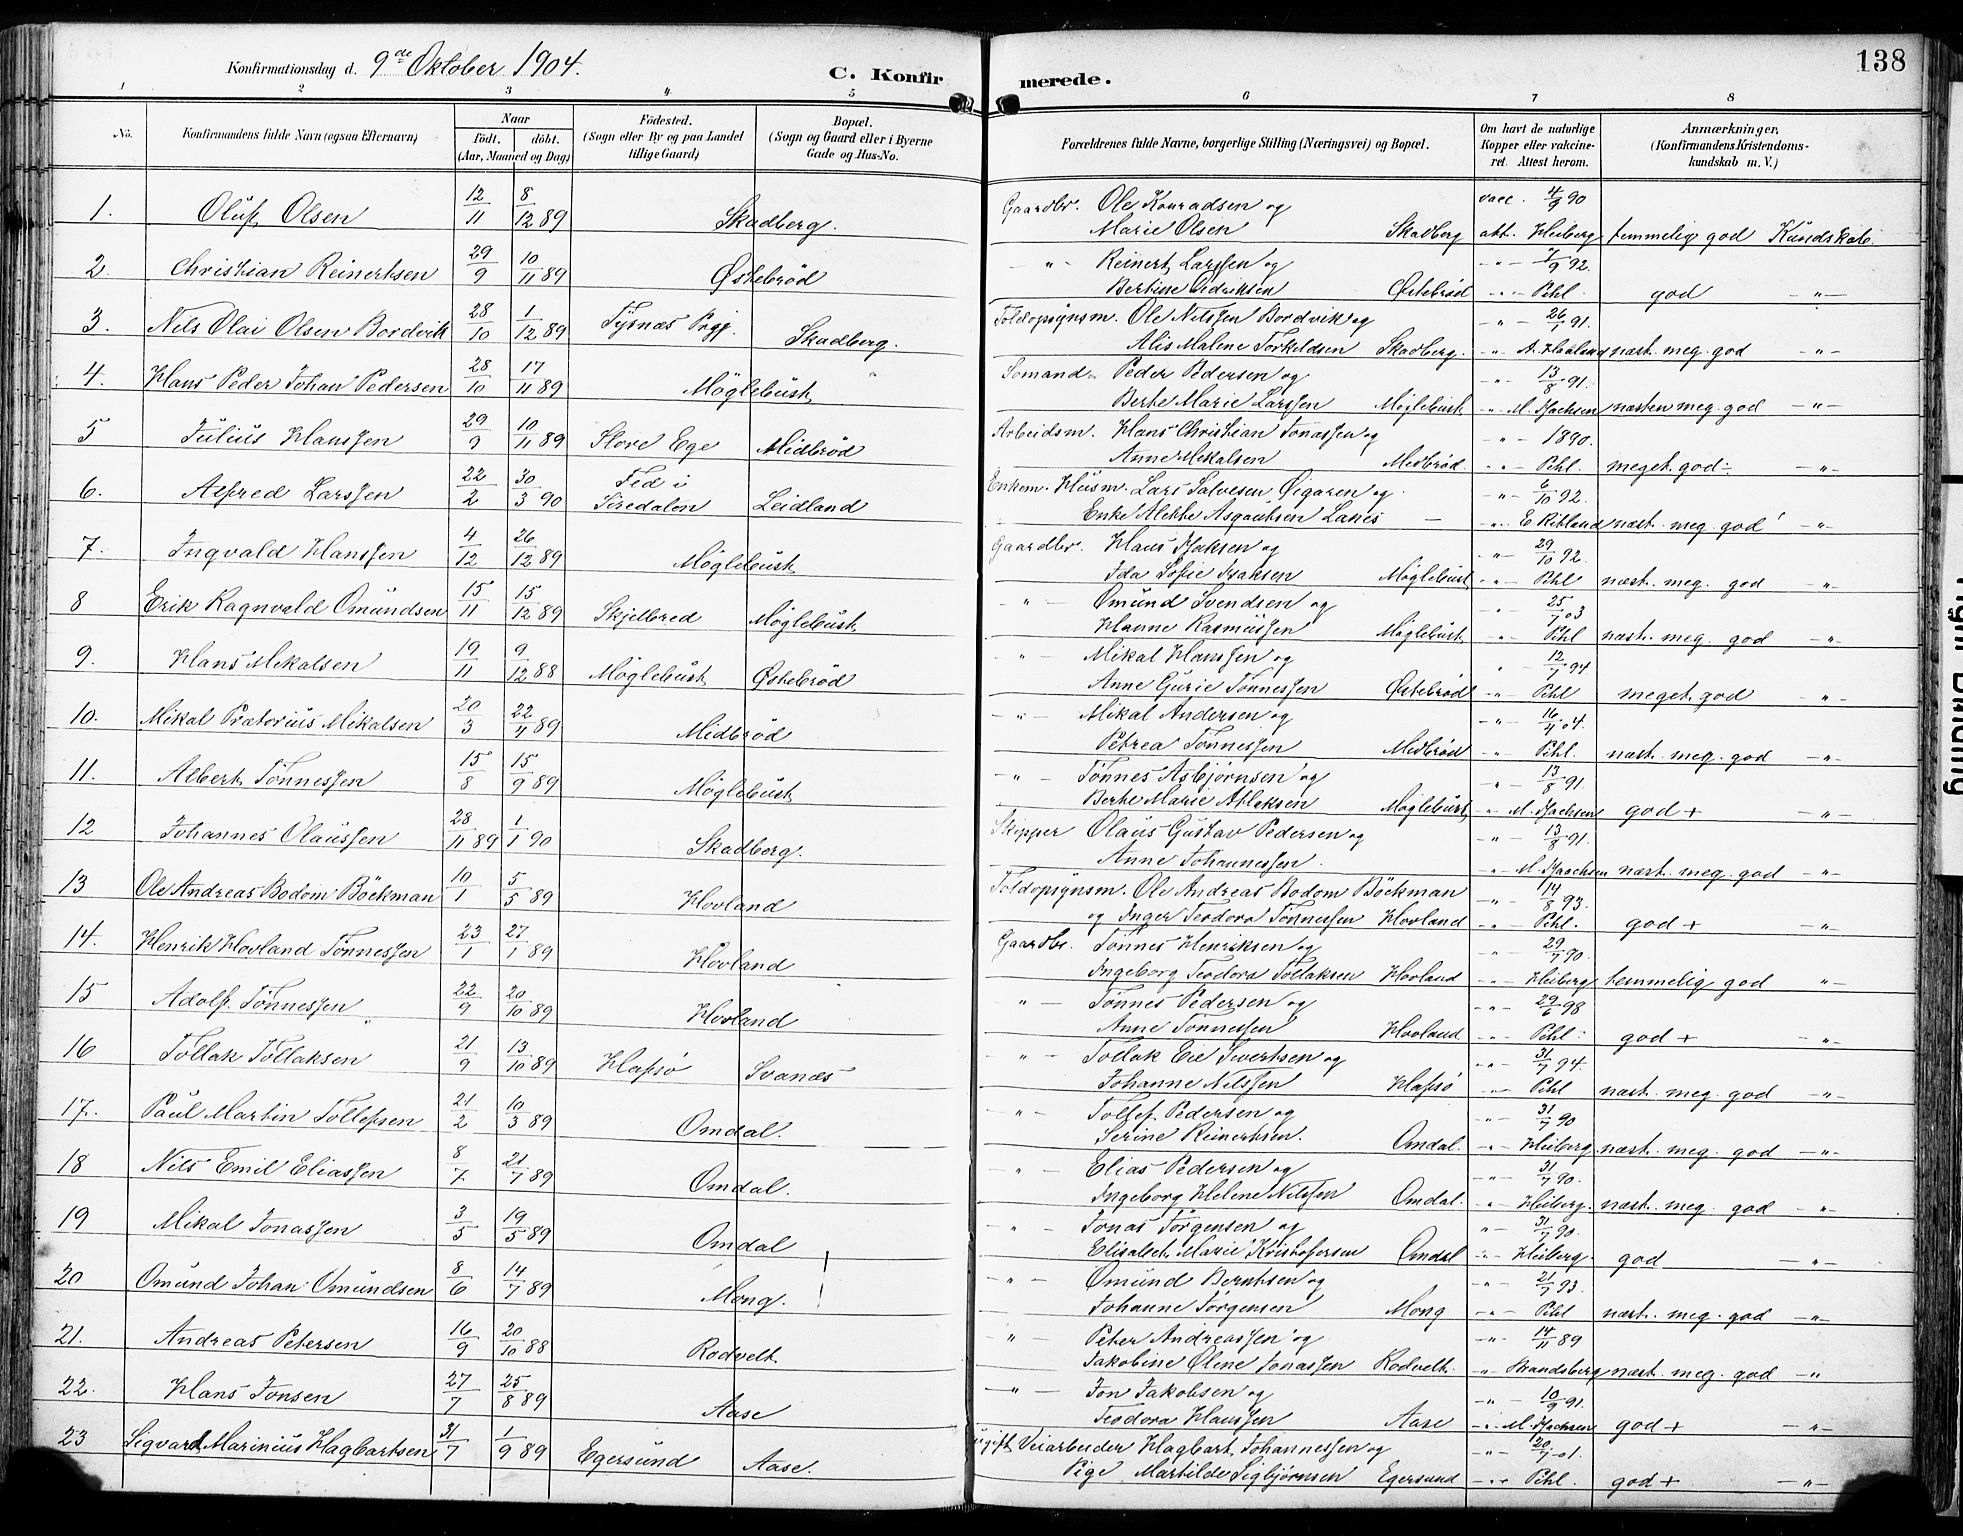 138
Konfirmationsdag d. 9de Oktober 1904. C. Konfirmerede.
1 2 3 4 5 6 7 8
No. Konfirmandens fulde Navn (ogsaa Efternavn) Naar født. døbt. (Aar, Maaned og Dag) Fødested. (Sogn eller By og paa Landet tillige Gaard) Bopæl. (Sogn og Gaard eller i Byerne Gade og Hus-No. Forældrenes fulde Navne, borgerlige Stilling (Næringsvei) og Bopæl. Om havt de naturlige Kopper eller vaccineret. Attest herom. Anmærkninger. (Konfirmandens Kristendomskundskab m. V.)
1. Oluf Olsen 12/11 8/12 89 Skadberg. Gaardbr. Ole Konradsen og vacc. 4/9 90
Marie Olsen Skadberg att. Heiberg temmelig god Kundskab.
2. Christian Reinertsen 29/9 10/11 89 Østebrød -"- Reinert Larssen og -"- 1/9 92.
Bertine Østebrød -"- Pihl. god -"-
3. Nils Olai Olsen Bordvik 28/10 1/12 89 Tysnæs Prgj. Skadberg. Toldopsynsm. Ole Nilssen Bordvik og -"- 26/1 91.
Alis Malene Torkildsen Skadberg. -"- A. Haaland næst. meg. god -"-
4. Hans Peder Johan Pedersen 28/10 17/11 89 Møglebust Sømand Peder Pedersen og -"- 13/8 91.
Berte Marie Larssen Møglebust -"- M. Isachsen næsten meg. god -"-
5 Julius Hanssen 29/9 10/11 89 Store Ege Midbrød Arbeidsm. Hans Christian Jonassen og -"- 1890.
Anne Mikalsen Midbrød. -"- Pihl. meget god -"-
6. Alfred Larssen 22/2 30/3 90 Fed i Siredalen Leidland Enkem. Husm. Lars Salvesen Øigaren og -"- 6/10 92.
Enke Alette Asgautsen Lanes -"- E. Ritland næst. meg. god -"-
7. Ingvald Hanssen 4/12 26/12 89 Møglebust Gaardbr. Hans Isaksen og -"- 29/10 92.
Ida Sofie Isaksen Møglebust -"- Pihl næst. meg. god -"-
8 Erik Ragnvald Omundsen 15/11 15/12 89 Skjelbred Møglebust -"- Omund Svendsen og -"- 25/7 03
Hanne Rasmussen Møglebust -"- Pihl næst. meg. god -"-
9. Hans Mikalsen 19/11 9/12 88 Møglebust Østebrød -"- Mikal Hanssen og -"- 12/7 94
Anne Gurie Tønnessen Østebrød -"- Pihl meget god -"-
10. Mikal Prætorius Mikalsen 20/3 22/4 89 Midbrød -"- Mikal Andersen og -"- 16/4 04.
Petrea Tønnessen Midbrød -"- Pihl. næst. meg. god -"-
11. Albert Tønnessen 15/8 15/9 89 Møglebust -"- Tønnes Asbjørnsen og -"- 13/8 91.
Berte Marie Atlaksen Møglebust -"- M. Isachsen god + -"-
12 Johannes Olaussen 28/11 89 1/1 90 Skadberg. Skipper Olaus Gustav Pedersen og -"- 13/8 91.
Anne Johannessen. -"- M. Isachsen næst. meg. god -"-
13 Ole Andreas Bodom Böckman 10/1 5/5 89 Hovland Toldopsynsm. Ole Andreas Bodom Böckman -"- 14/8 93.
og Inger Teodora Tønnessen Hovland -"- Pihl. god + -"-
14. Henrik Hovland Tønnessen 23/1 27/1 89 Hovland Gaardbr. Tønnes Henriksen og -"- 29/7 90.
Ingeborg Teodora Tollaksen Hovland -"- Heiberg temmelig god -"-
15 Adolf Tønnessen 22/9 20/10 89 Hovland -"- Tønnes Pedersen og -"- 29/6 98
Anne Tønnessen Hovland -"- Pihl. god + -"-
16 Tollak Tollaksen 21/9 13/10 89 Hafsø Svanæs -"- Tollak Eie Sivertsen og -"- 31/7 94.
Johanne Nilssen Hafsø -"- Pihl næst. meg. god -"-
17. Paul Martin Tollefsen 21/2 10/3 89 Omdal. -"- Tollef Pedersen og -"- 31/7 90
Serine Reinertsen. Omdal. -"- Heiberg næst. meg. god -"-
18 Nils Emil Eliassen 8/7 21/7 89 Omdal. -"- Elias Pedersen og -"- 31/7 90.
Ingeborg Helene Nilssen Omdal. -"- Heiberg. næst. meg. god -"-
19 Mikal Jonassen 3/5 19/5 89 Omdal -"- Jonas Jørgensen og -"- 31/7 90.
Elisabet Marie Kristofersen Omdal -"- Heiberg. god -"-
20 Omund Johan Omundsen 8/6 14/7 89 Mong. -"- Omund Berntsen og -"- 21/7 93.
Johanne Jørgensen Mong -"- Pihl næst. meg. god -"-
21. Andreas Petersen 16/9 20/10 88 Rodvelt -"- Peter Andreassen og -"- 14/11 89
Jakobine Oline Jonassen Rodvelt. -"- Brandsberg næst. meg. god -"-
22. Hans Jonsen 27/7 25/8 89 Aase -"- Jon Jakobsen og -"- 10/9 91.
Teodora Hanssen Aase -"- M. Isachsen god + -"-
23 Sigvard Marinius Hagbartsen 31/7 1/9 89 Egersund Aase. ugift Veiarbeider Hagbart Johannessen og -"- 20/7 01.
Pige Martilde Sigbjørnsen Egersund -"- Pihl. god + -"-